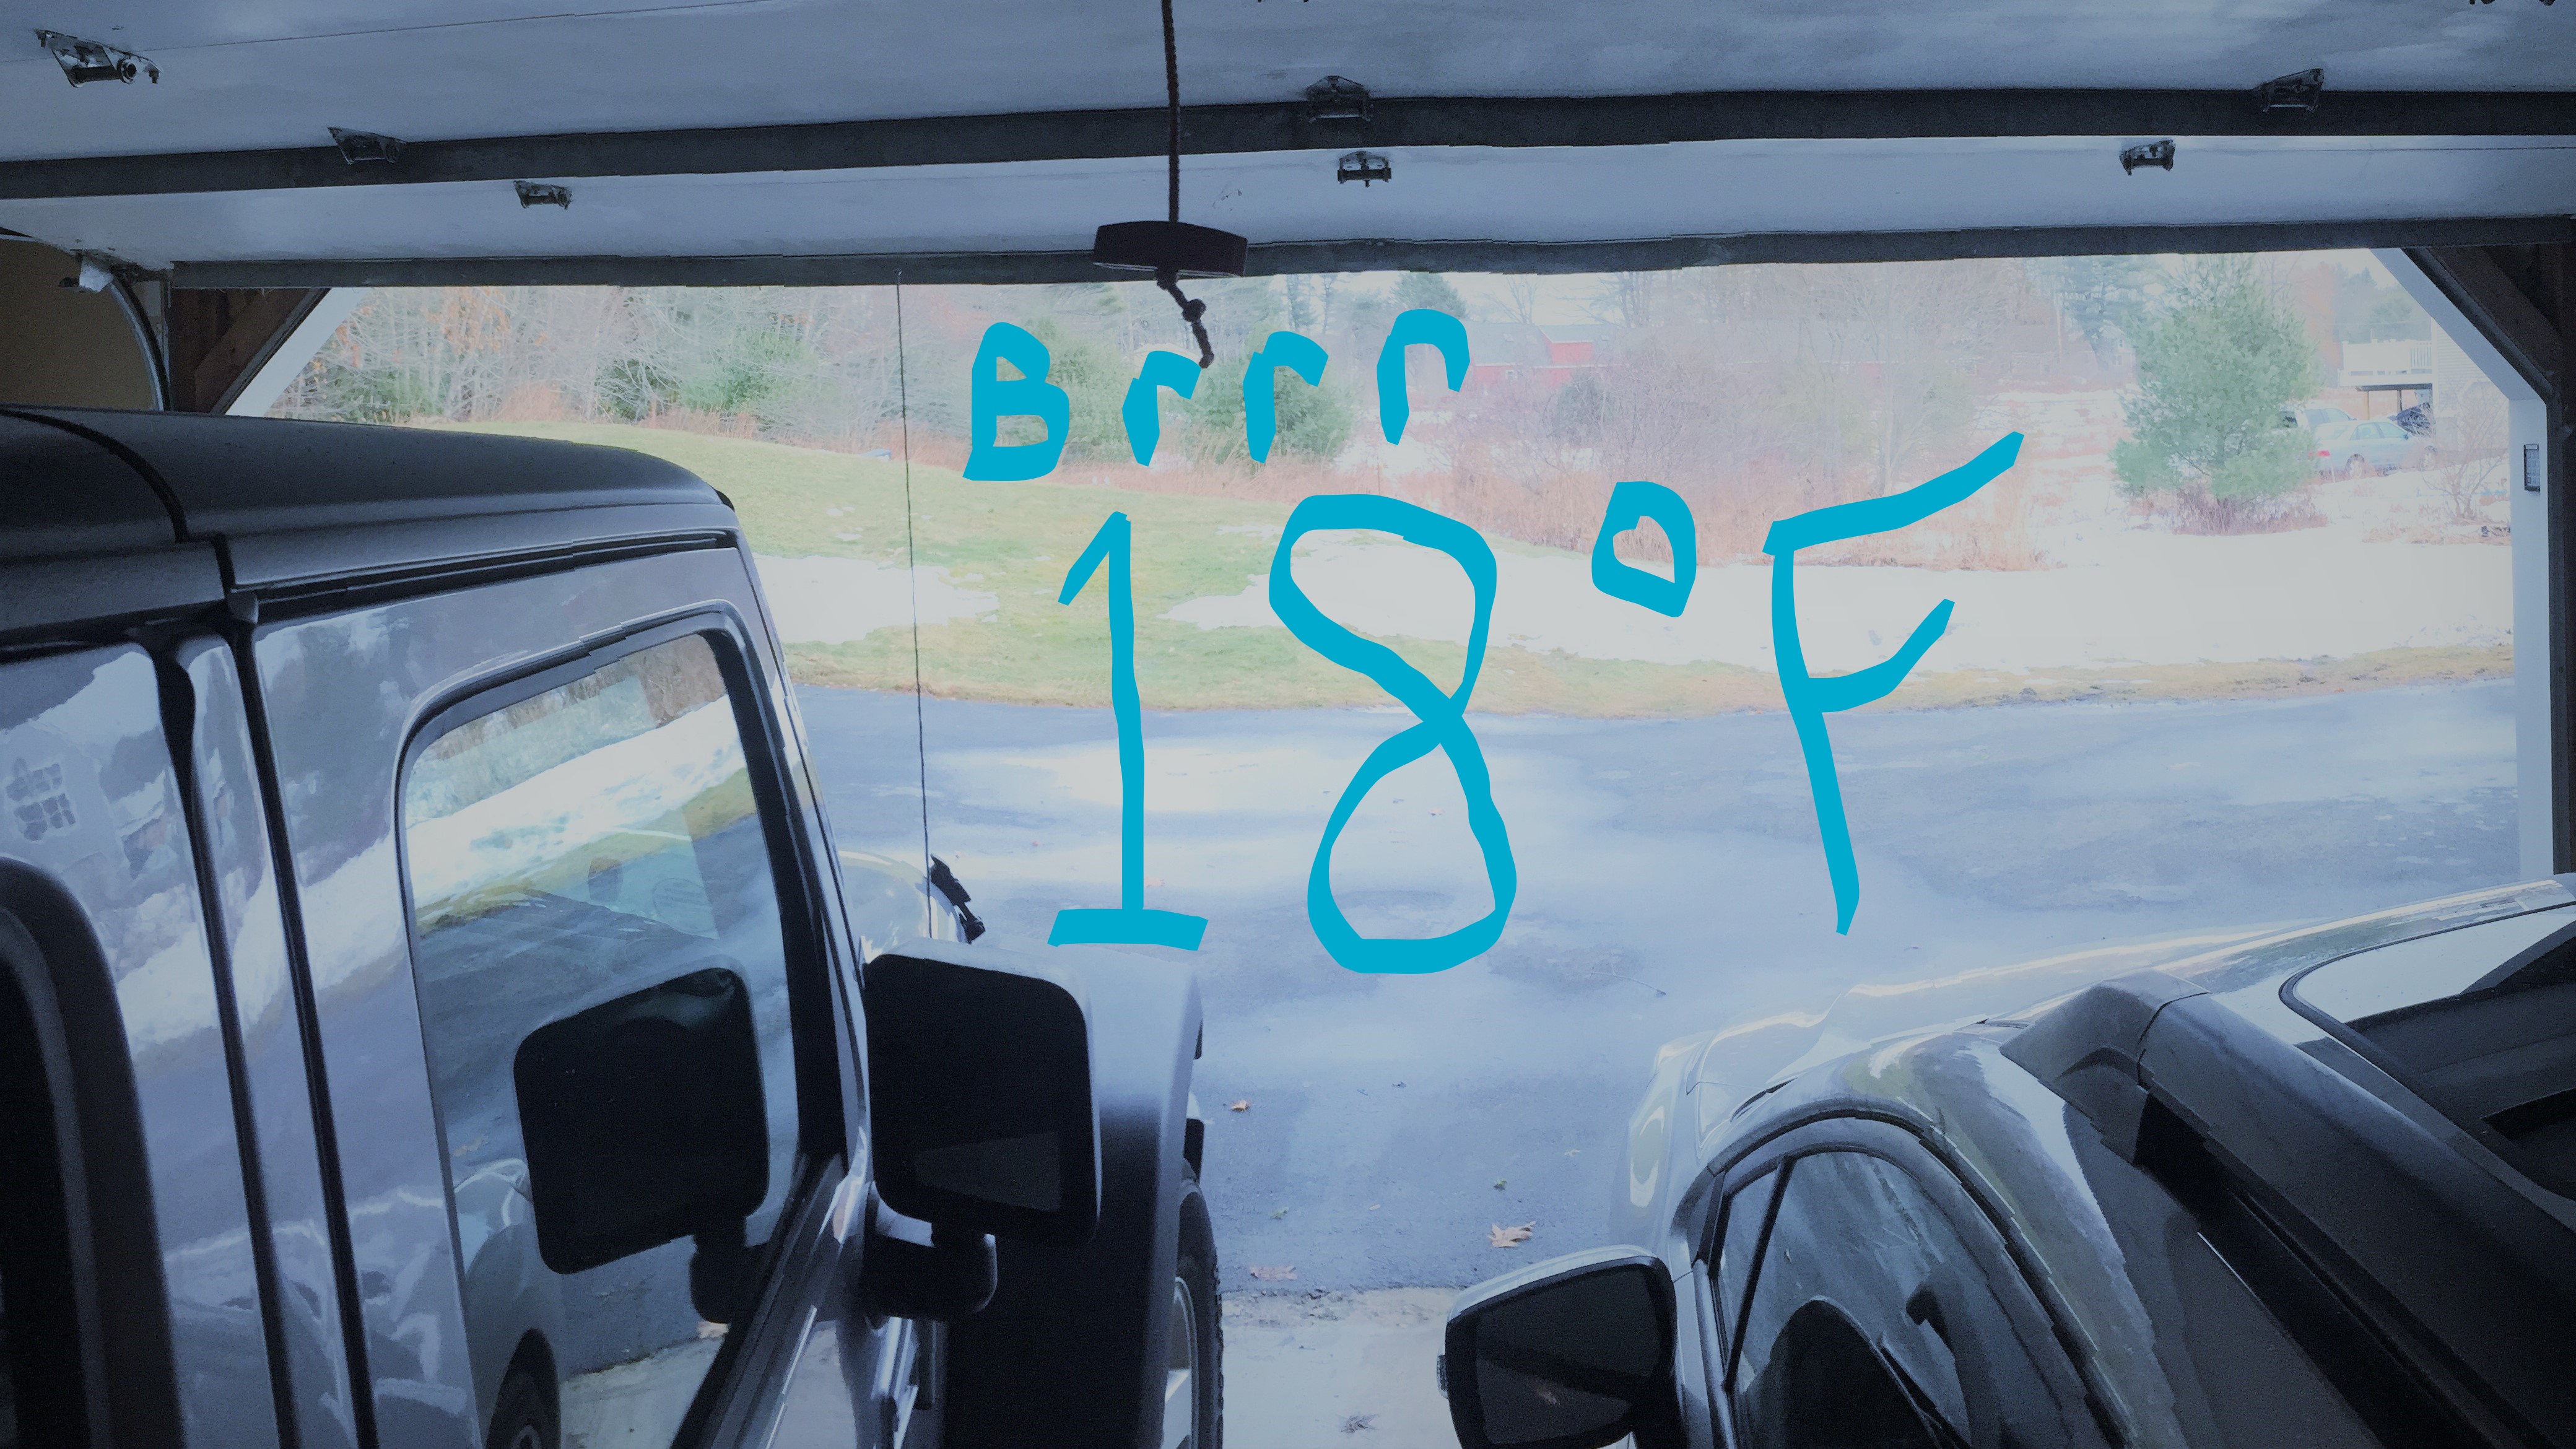 Brrr
18°F